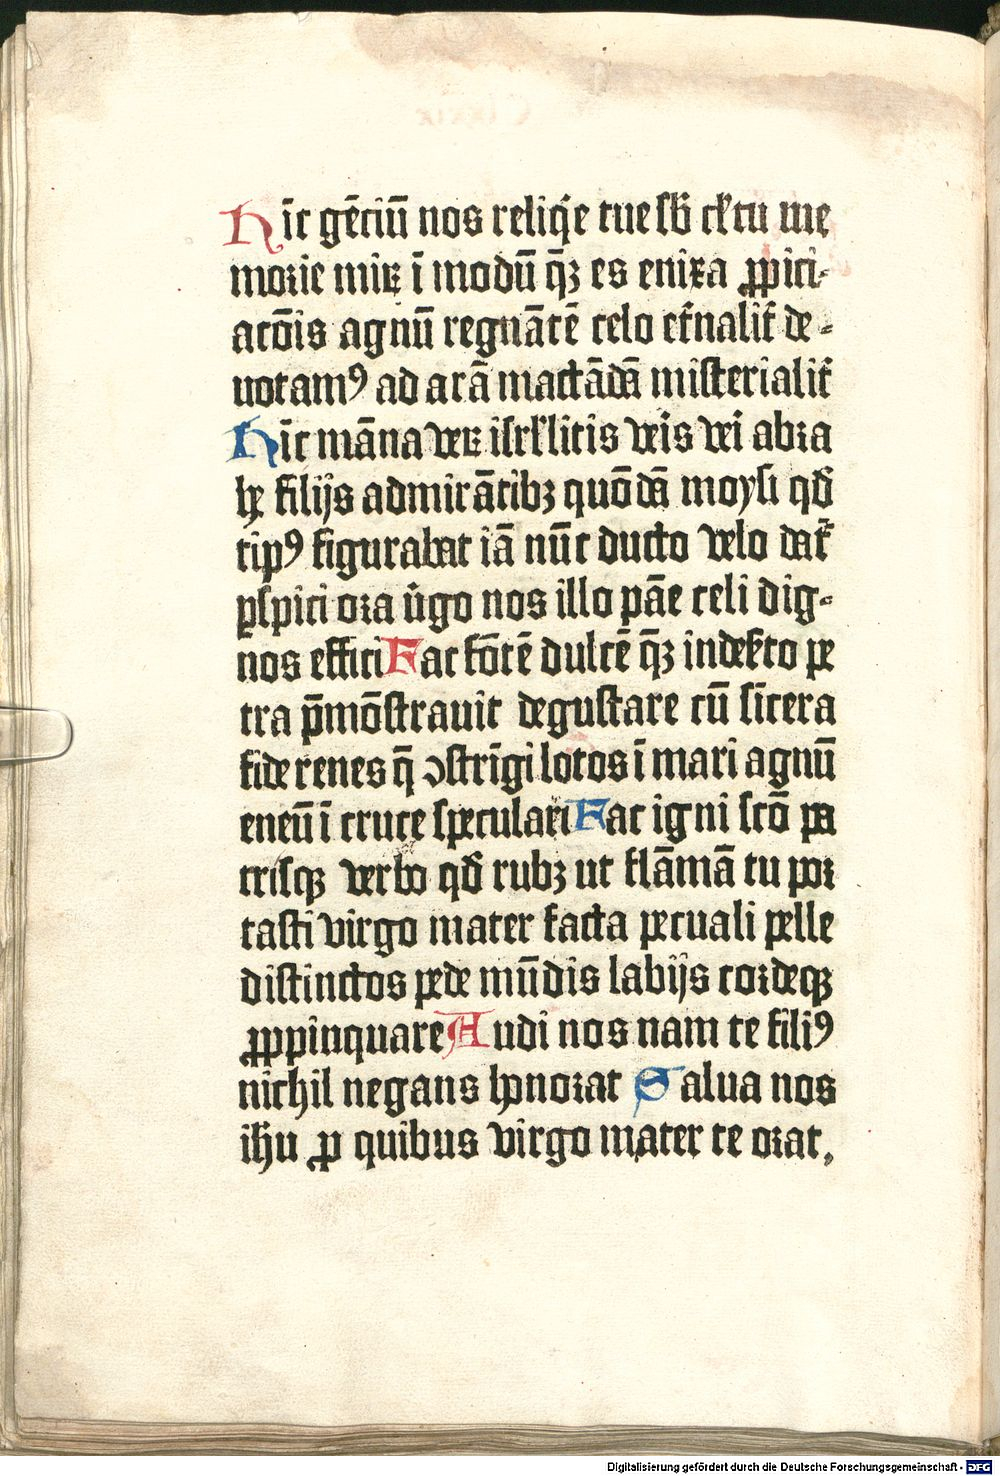 Hīc gēciū nos reliq̄e tue sb̄ cl̄tu me
morie miꝝ ī modū qʒ̄ es enixa ꝓpici-
acōis agnū regnātē celo et̄nalit̄ de-
uotamꝰ ad arā mactādā misterialit̄
Hīc māna veꝝ isrl̄litis veīs veī abra
hę filijs admirātibʒ quōdā moysi qđ
tipꝰ figurabat iā nūc ducto velo dat̄
ꝑspici ora v̄go nos illo pāe celi dig-
nos effici Fac fōtē dulcē qʒ̄ indeſ̄to pe
tra p̄mōstrauit degustare cū sīcera
fide renes q̄ ꝯstrīgi lotos ī mari agnū
eneū ī cruce speculari Fac igni scō pa
trisqʒ verbo qđ rubʒ ut flāmā tu por
tasti virgo mater facta pecuali pelle
distinctos pede mūdis labijs cordeqʒ
ꝓpinquare Audi nos nam te filiꝰ
nichil negans hānorat Salua nos
ihu ꝓ quibus virgo mater te orat,
Digitalisierung gefördert durch die Deutsche Forschungsgemeinschaft - DFG